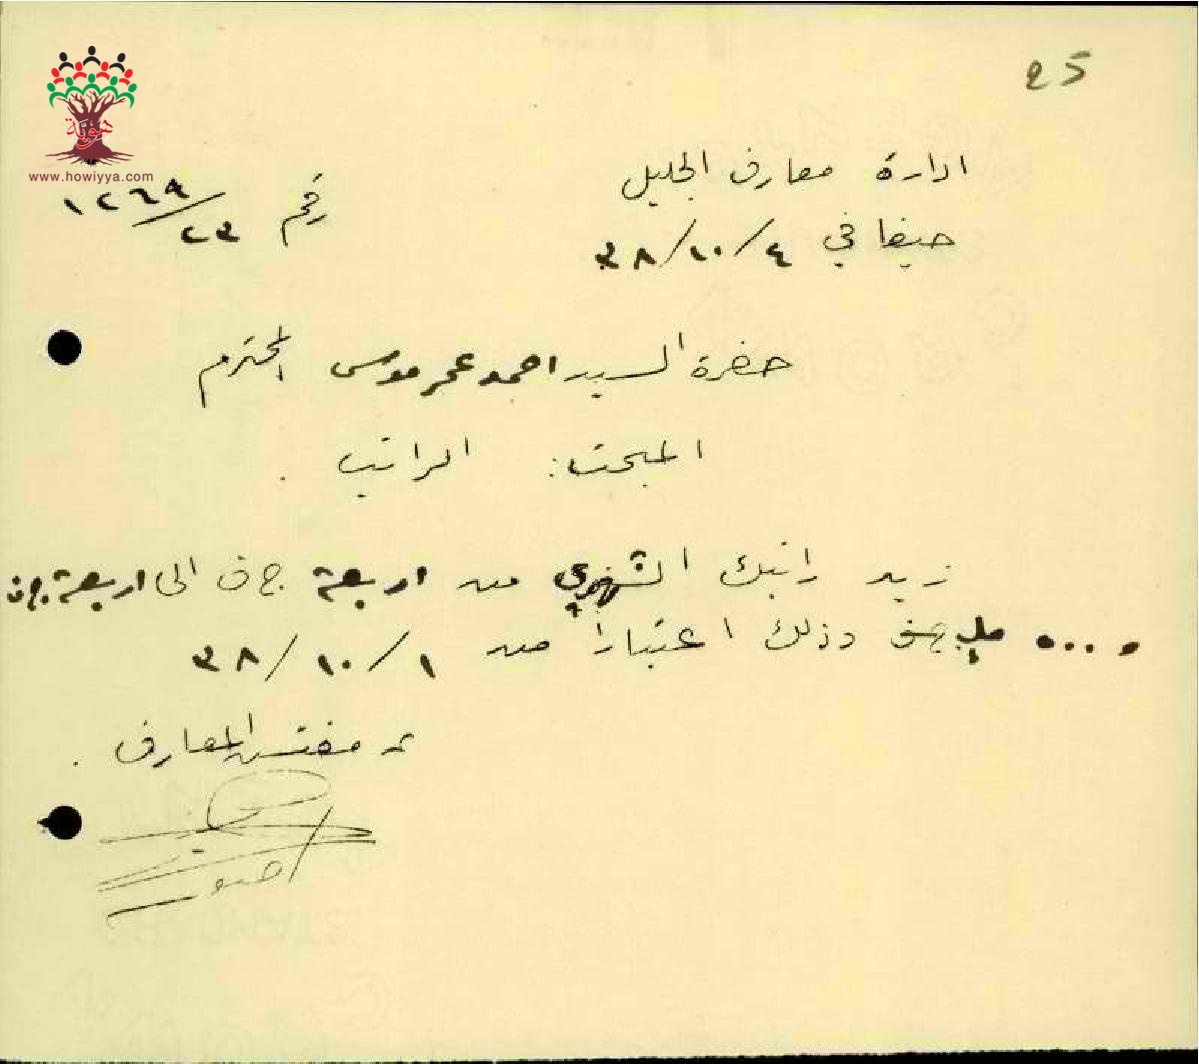 25
هوية
www.howiyya.com
ادارة معارف الجليل
رقم ١٢٦٩/٢٣
حيفا في ٤/١٠/٣٨
حضرة السيد احمد عمر موسى المحترم
المبحث: الراتب .
زيد راتبك الشهري من اربعة ج ف الى اربعة ج ف
و ٥٠٠ مل وذلك اعتبارا من ١/١٠/٣٨
مفتش المعارف .